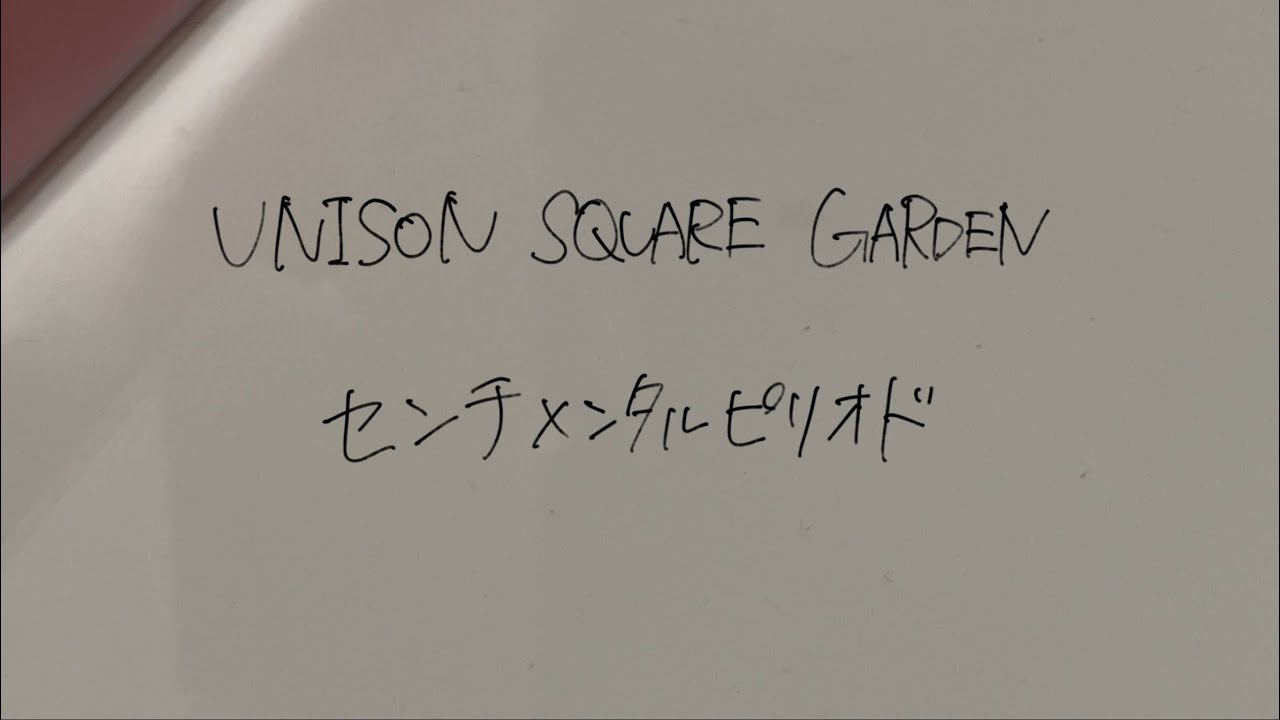 UNISON SQUARE GARDEN
センチメンタルピリオド